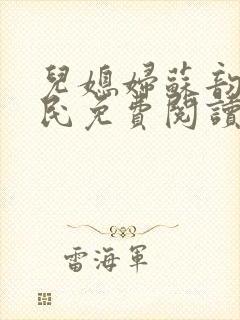 兒媳婦蘇韵
民免費閱讀
雷海軍